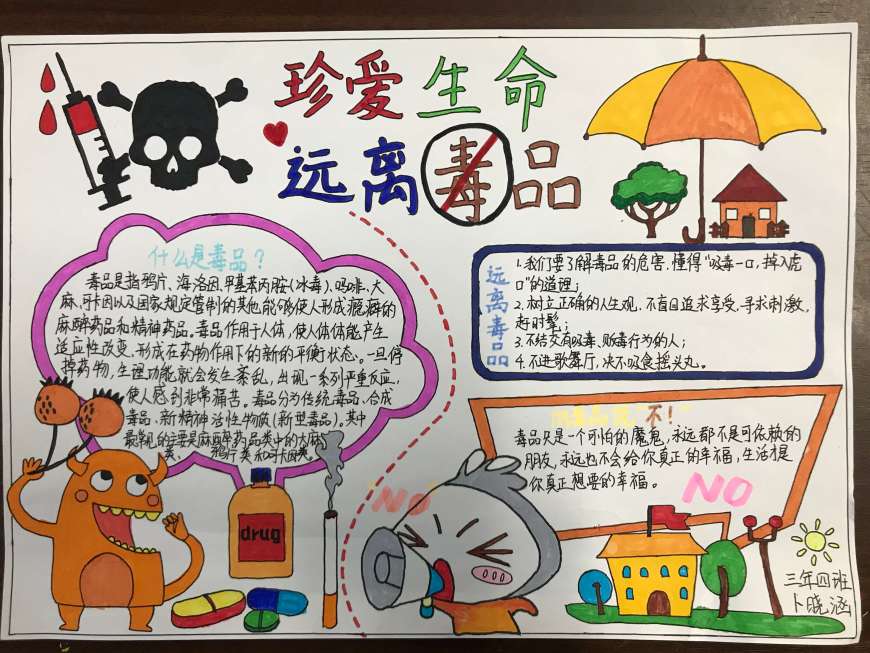 珍爱生命
远离毒品
什么是毒品？
毒品是指鸦片、海洛因、甲基苯丙胺(冰毒)、吗啡、大
麻、可卡因以及国家规定管制的其他能够使人形成瘾癖的
麻醉药品和精神药品。毒品作用于人体，使人体体能产生
适应性改变，形成在药物作用下的新的平衡状态。一旦停
掉药物，生理功能就会发生紊乱，出现一系列严重反应，
使人感到非常痛苦。毒品分为传统毒品、合成
毒品、新精神活性物质(新型毒品)。其中
最常见的主要是麻醉药品类中的大麻
类、鸦片类和可卡因类。
远离毒品
1.我们要了解毒品的危害，懂得“吸毒一口，掉入虎
口”的道理；
2.树立正确的人生观，不盲目追求享受，寻求刺激，
赶时髦；
3.不结交有吸毒、贩毒行为的人；
4.不进歌舞厅，决不吸食摇头丸。
向毒品说“不！”
毒品只是一个可怕的魔鬼，永远都不是可依赖的
朋友，永远也不会给你真正的幸福，生活才是
你真正想要的幸福。
“NO”
NO
drug
三年四班
卜晓涵